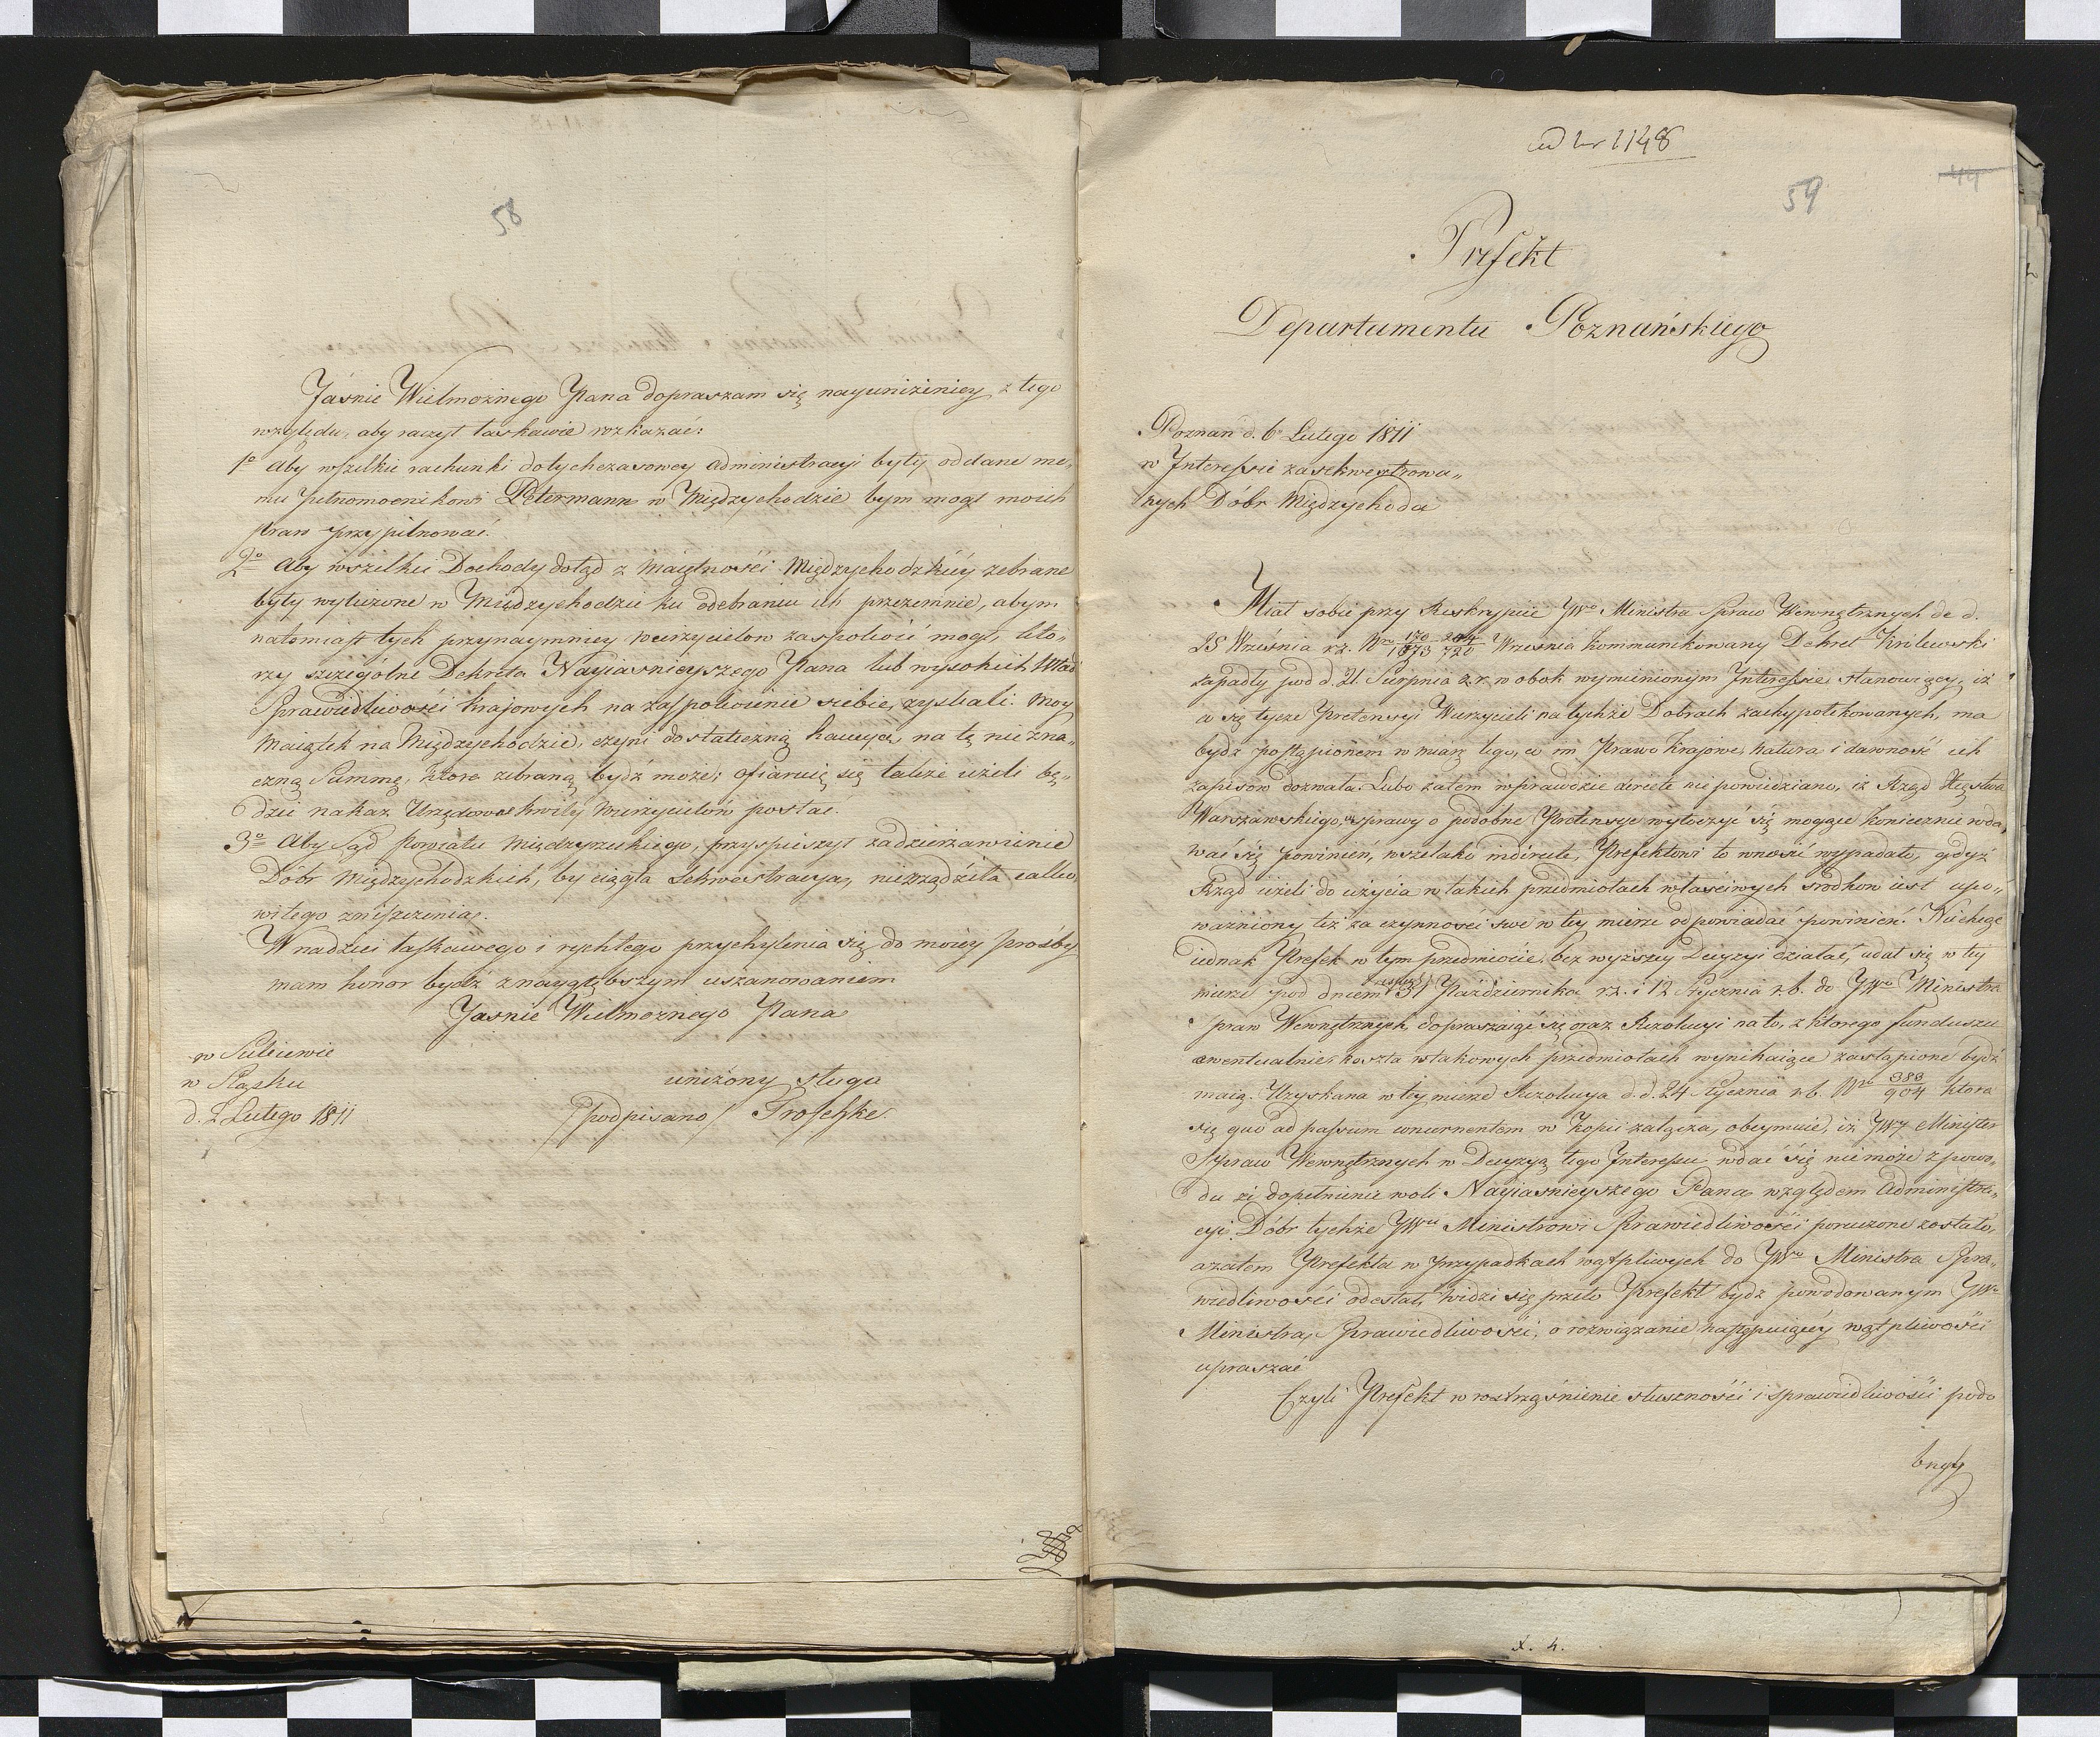 58
Jaśnie Wielmożnego Pana dopraszam się nayuniżeniey z tego
względu, aby raczył łaskawie rozkazać:
1o Aby wszelkie rachunki dotychczasowey administracyi były oddane me„
mu pełnomocnikowi Petermann w Międzychodzie bym mogł moich
praw przypilnować.
2o Aby wszelkie Dochody dotąd z Maiętności Międzychodzkiéy zebrane
były wyłuzone w Międzychodzie ku odebraniu ich przezemnie, abym
natomiast tych przynaymniey wierzycielow zaspokoić mogł, kto„
rzy szczególne Dekreta Nayiaśnieyszego Pana lub wysokich Wład
Sprawiedliwości krajowych na zaspokoienie siebie, zyskali. Moy
Maiątek na Międzychodzie, czyni dostateczną kaucyą na tę nie zna„
czną Summę, ktora zebraną bydź może; ofiaruię się także ieżeli bę„
dzie nakaz Urzędowe kwity wierzycielow postać.
3o Aby Sąd Powiatu Międzyrzeckiego, przyspieszył zadzierzawienie
Dóbr Międzychodzkich, by ciągła Sekwestracya, nierządziła całko„
witego zniszczenia.
W nadziei łaskawego i rychłego przychylenia się do moiéy prośby
mam honor bydź z naygłębszym uszanowaniem
Jaśnie Wielmożnego Pana
w Suliewie
w Sląsku
d. 2 Lutego 1811
uniżony sługa
/podpisano/ Troschke.
ad Nr 1148
59
44
Prefekt
Departamentu Poznańskiego
Poznań d. 6o Lutego 1811
w Interessie zasekwestrowa„
nych Dóbr Międzychoda
Miał sobie przy Reskrypcie JWo Ministra Spraw Wewnętrznych de d.
25 Września r.z. Nro 170/1073 204/720 Września kommunikowany Dekret Królewski
zapadły pod d. 21. Sierpnia z.r. w obok wymienionym Interessie stanowiący, iż
co się tycze Pretensyi Wierzycieli na tychże Dobrach zahypotekowanych, ma
bydź postąpioném w miarę tego, co im Prawo Krajowe, natura i dawność ich
zapisów dozwala. Lubo zatem wprawdzie directe nie powiedziano, iż Rząd Xięstwa
Warszawskiego, w sprawy o podobne Pretensye wytoczyć się mogące koniecznie wda„
wać się powinien, wszelako indirecte, Prefektowi to wnosić wypadało, gdyż
Rząd ieżeli do użycia w takich przedmiotach właściwych srodkow iest upo„
ważniony też za czynności swe w tey mierze odpowiadać powinien. Nie chcąc
iednak Prefekt w tym przedmiocie, bez wyższey Decyzyi działać, udał się w tey
mierze pod dniem 31 Października r.z. i 12 Stycznia r.b. do JWo Ministra
Spraw Wewnętrznych, dopraszaiąc się oraz Rezolucyi na to, z ktorego funduszu
ewentualnie, koszta w takowych przedmiotach wynikaiące zastąpione bydź
maią. Uzyskana w tey mierze Rezolucya d.d. 24 Stycznia r.b. Nro 383/904 ktora
się quo ad passum concernentem w Kopii załącza, obeymuie, iż JWy Minister
Spraw Wewnętrznych w Decyzyą tego Interessu wdać się nie może z powo„
du że dopełnienie woli Nayiaśnieyszego Pana względem Administra„
cyi Dóbr tychże JWu Ministrowi Sprawiedliwości poruczone zostało,
a zatem Prefekta w przypadkach wątpliwych do JWo Ministra Spra„
wiedliwości odesłał, widzi się przeto Prefekt bydź powodowanym JWo
Ministra, Sprawiedliwości, o rozwiązanie następuiącéy wątpliwości
upraszać
Czyli Prefekt w roztrząśnienie słuszności i sprawiedliwości podo
bnych